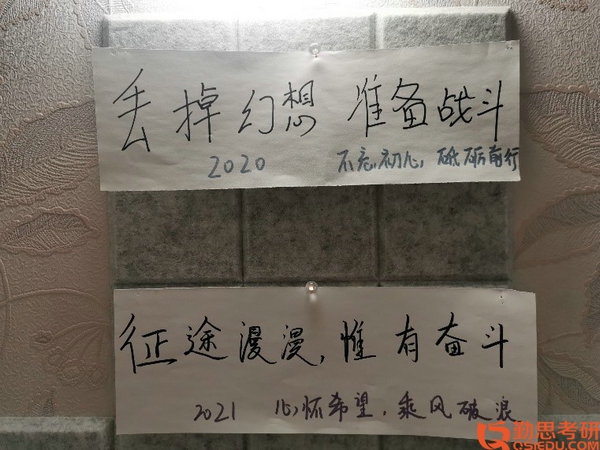 丢掉幻想 准备战斗
2020 不忘初心,砥砺前行
征途漫漫,惟有奋斗
2021 心怀希望,乘风破浪
勤思考研
QSIEDU.COM